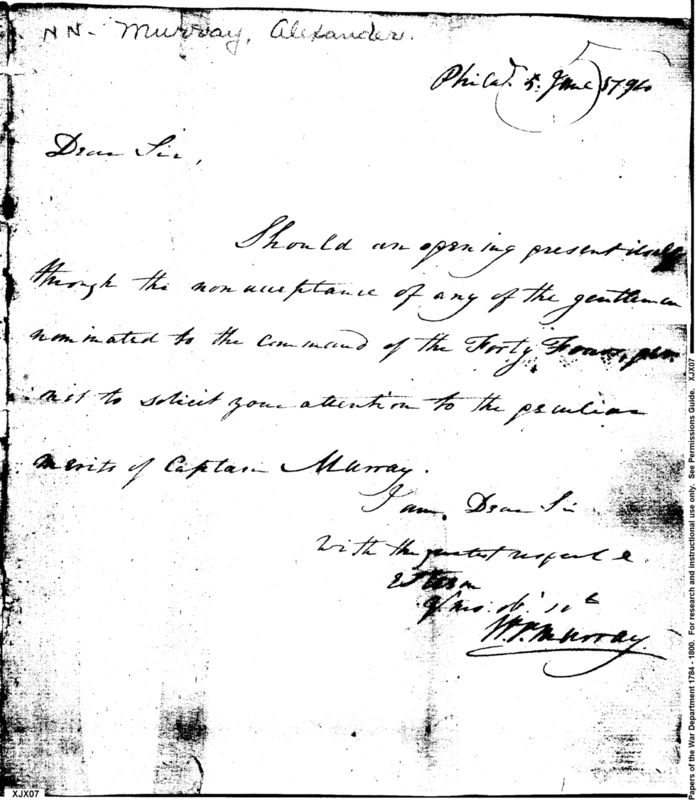 NN- Murray, Alexander.
Philad. 5. June 1794
Dear Sir,
Should an opening present itself
through the non acceptance of any of the gentlemen
nominated to the command of the Forty Fours, per
mit to solicit your attention to the peculiar
merits of Captain Murray.
I am, Dear Sir
with the greatest respect &
Esteem
yr. mo. ob. st
W. V. Murray.
XJX07
Papers of the War Department 1784 - 1800. For research and instructional use only. See Permissions Guide. XJX07